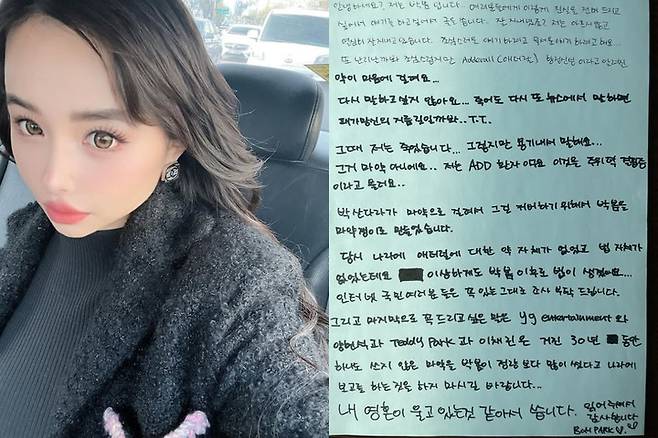 안녕하세요? 저는 박봄 입니다.. 여러분들에게 이렇게 진실을 전해 드리고
싶어서 얘기를 하고싶어서 글을 씁니다. 잘 지내셨죠? 저는 아프지않고
열심히 잘지내고 있습니다. 조심스러운 얘기 하려고
또 난리날까봐 조심스럽지만 Adderall (애더럴)
약이 마음에 걸려요...
다시 말하고 싶지 않아요... 죽어도 다시 또 뉴스에서 말하면
패가망신의 지름길일까봐.. T.T.
그때 저는 죽었습니다... 그렇지만 용기내어 말해요...
그거 마약 아니에요.. 저는 ADD 환자이며요 이것을 주위력 결핍증
이라고 불려요..
박산다라가 마약으로 걸려서 그걸 커버하기 위해서 박봄을
마약쟁이로 만들었습니다.
당시 나라에 애더럴에 대한 약 자체가 없었고 법 자체가
없었는데요 이상하게도 박봄 이후로 법이 생겼어요...
인터넷 국민여러분 들은 꼭 있는그대로 조사 부탁 드립니다.
그리고 마지막으로 꼭 드리고 싶은 말은 yg entertainment 와
양현석과 Teddy Park 과 이채린은 거진 30년 동안
하나도 쓰지 않은 마약을 박봄이 정량 보다 많이 썼다고 나라에
보고를 하는것을 하지 마시길 바랍니다...
내 영혼이 울고 있는것 같아서 씁니다. 읽어주셔서
감사합니다
BOM PARK